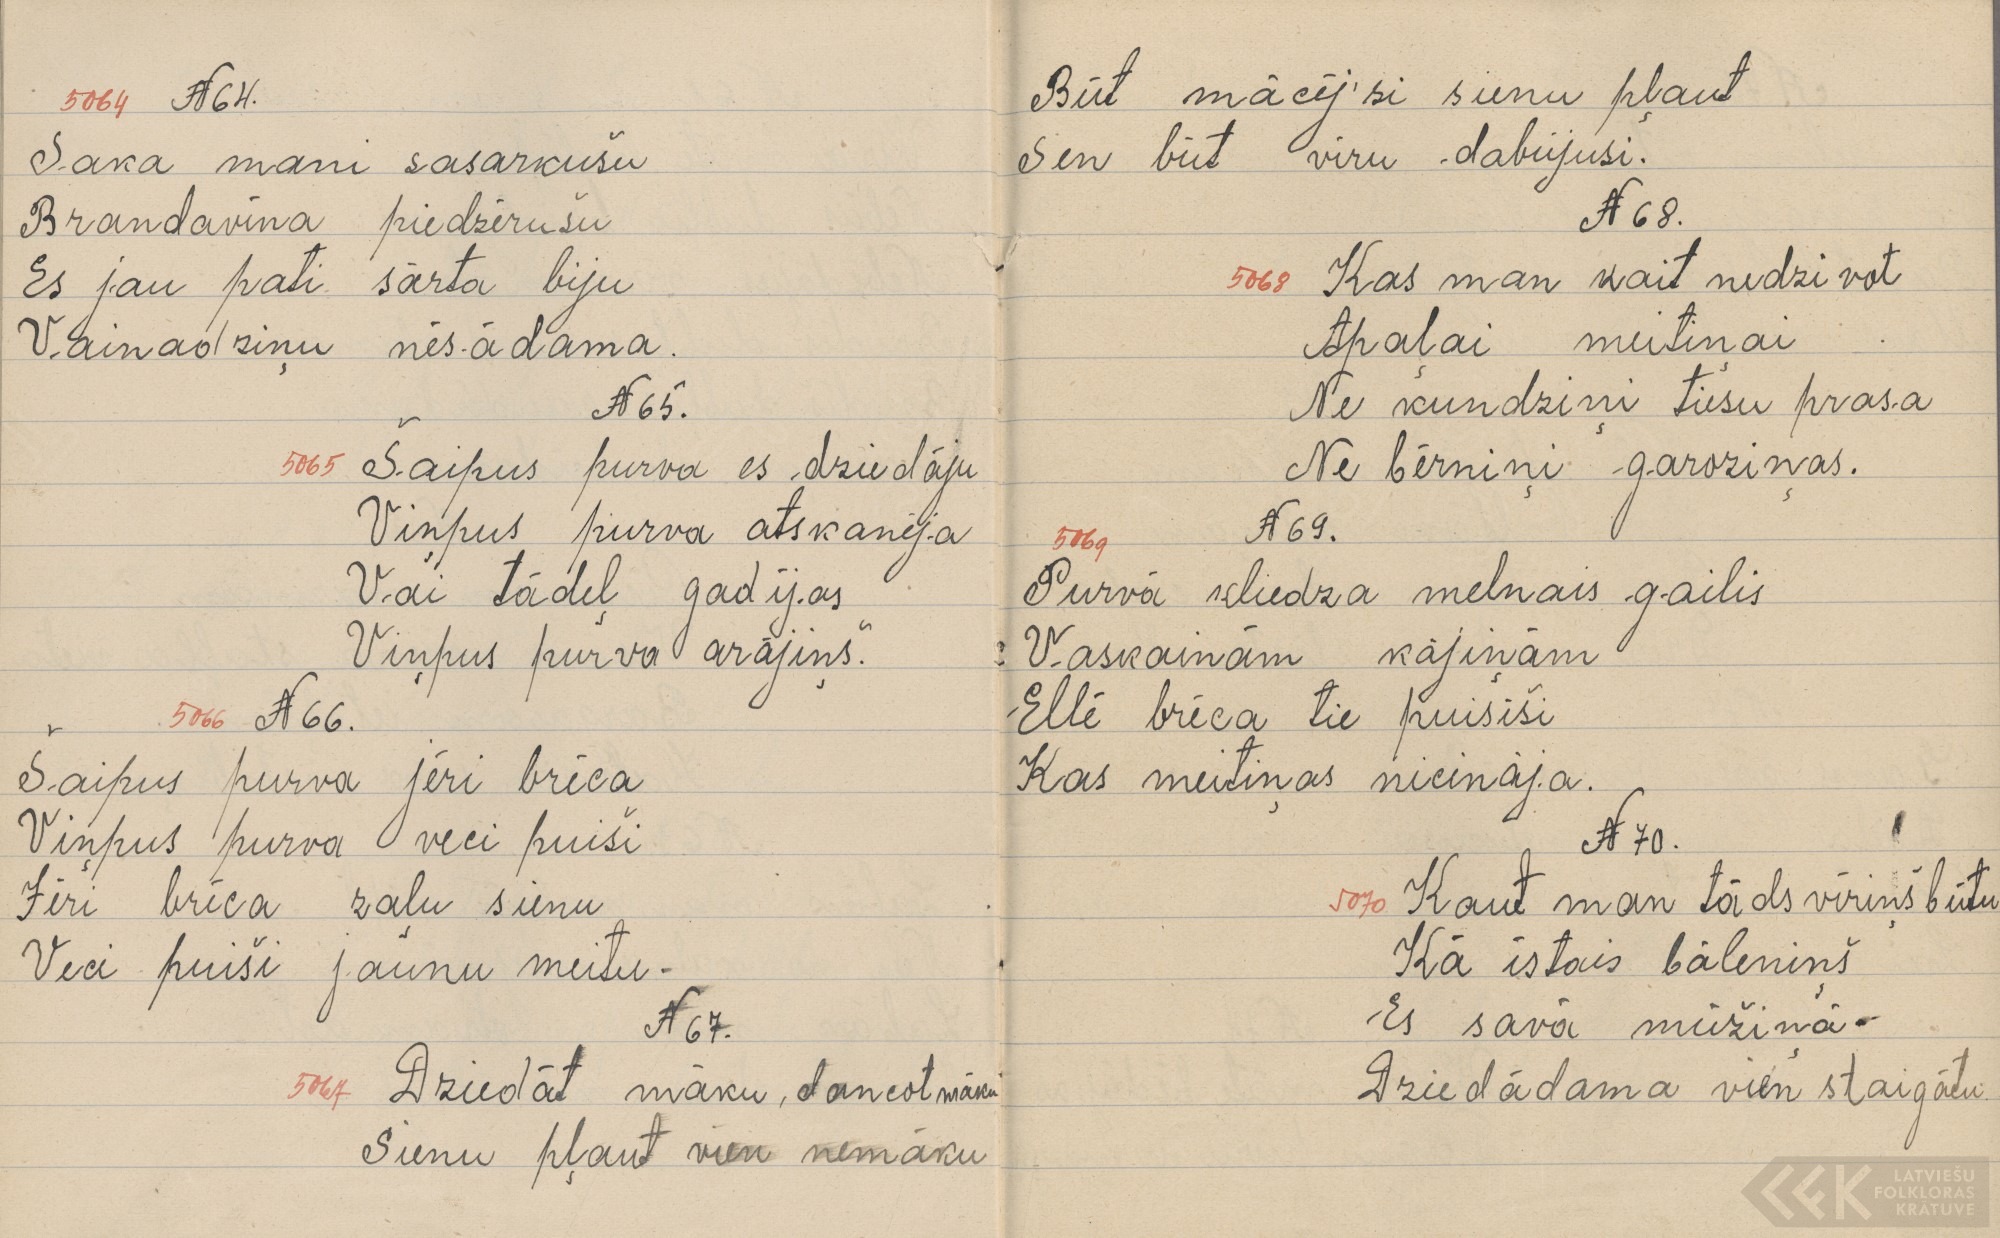 5064 № 64.
Saka mani sasarkušu
Brandavīna piedzērušu
Es jau pati sārta biju
Vainadziņu nēsādama.
№ 65.
5065 Šaipus purva es dziedāju
Viņpus purva atskanēja
Vai tādeļ gadījas
Viņpus purva arājiņš."
5066 № 66.
Šaipus purva jēri brēca
Viņpus purva veci puiši
Jēri brēca zaļu sienu
Veci puiši jaunu meitu-
№ 67.
5067 Dziedāt māku, dancot māku
Sienu pļaut vien nemāku
Būt mācēj'si sienu pļaut
Sen būt vīru dabūjusi.
№ 68.
5068 Kas man kait nedzivot
Apaļai meitiņai
Ne kundziņi tiesu prasa
Ne bērniņi garoziņas.
№ 69.
5069
Purvā kliedza melnais gailis
Vaskainām kājiņām
Ellē brēca tie puisiši
Kas meitiņas nicināja.
№ 70.
5070 Kaut man tāds vīriņš būtu
Kā īstais bāleniņš
Es savā mūžiņā-
Dziedādama vien staigātu.
LATVIEŠU
FOLKLORAS
KRĀTUVE